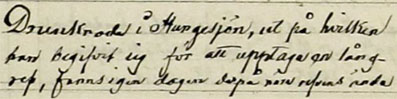 Drunknade i Hungesjön, ut på hvilken
han begifvit sig för att upptaga en lång-
ref, fanns igen dagen derpå när refvens nåda